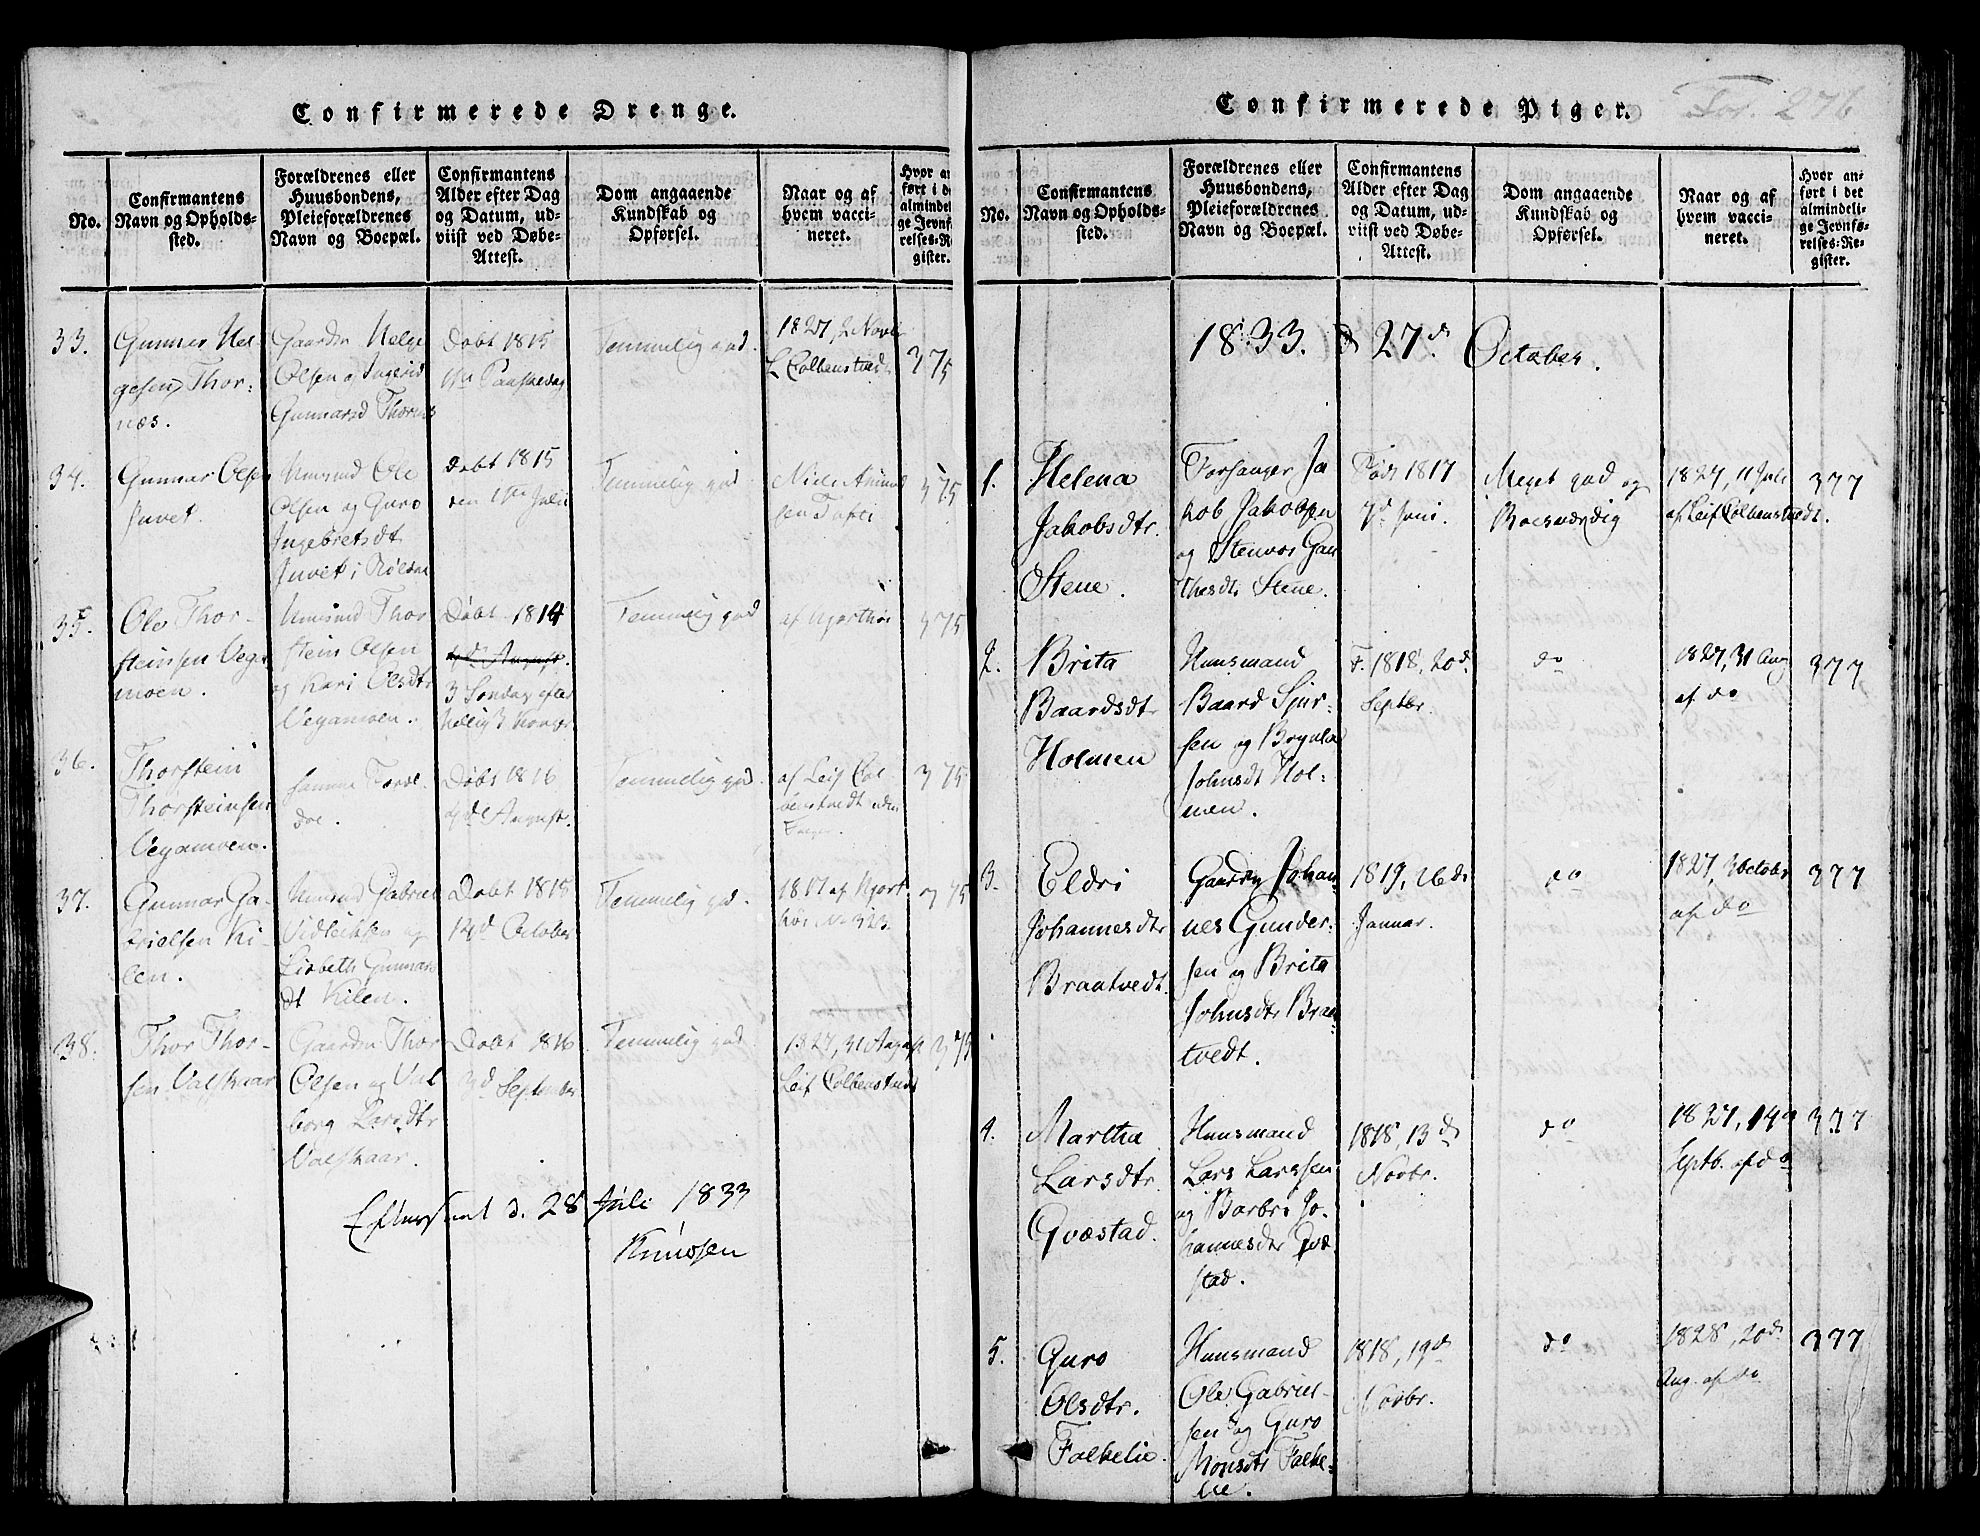 Confirmerede Drenge.
No.
Confirmantens
Navn og Opholds-
sted.
Forældrenes eller
Huusbondens,
Pleieforældrenes
Navn og Boepæl.
Confirmantens
Alder efter Dag
og Datum, ud-
viist ved Døbe-
Attest.
Dom angaaende
Kundskab og
Opførsel.
Naar og af
hvem vacci-
neret.
Hvor an-
ført i de
almindel
ge Jevnf
relses-R
gister.
33.
Gunner Hel-
gesen Thor-
næs.
Gaardm Helge
Olsen og Ingerid
Gunnarsd Thornæs
Døbt 1815
Paaskedag
Temmelig god.
1827, 2 Novbr
L Colbenstvedt
375
34.
Gunnar Olsen
Juvet.
Huusmd Ole
Olsen og Guro
Ingebretsdt
Juvet i Røldal
Døbt 1815
den Julii
Temmelig god
Niels Amund
sen
375
35.
Ole Thor-
steinsen Vega
moen.
Huusmd Thor
stein Olsen
og Kari Olsdtr
Vegamoen.
Døbt 1814
4de August.
3 Søndag efter
Temmelig god
af Hjorthøi
375
36.
Thorstein
Thorsteinsen
Vegamoen.
samme Foræl
dre.
Døbt 1816
4de August.
Temmelig god.
af Leif Col-
benstvedt uden
375
37.
Gunnar Ga-
brielsen Ki-
len.
Huusmd Gabriel
og
Lisbeth Gunnars
dt Kilen.
Døbt 1815
October
Temmelig god.
1817 af Hjort
høi No 323.
375
38.
Thor Thor-
sen Valskaar
Gaardm Thor
Olsen og Val
borg Larsdtr
Valskaar.
Døbt 1816
3d September
Temmelig god
1827, 31 August
Leif Colbenstvedt
375
Efterseet d. 28 Juli 1833
Knudsen
Confirmerede Piger.
For. 276
No.
Confirmantens
Navn og Opholds-
sted.
Forældrenes eller
Huusbondens,
Pleieforældrenes
Navn og Boepæl.
Confirmantens
Alder efter Dag
og Datum, ud-
viist ved Døbe-
Attest.
Dom angaaende
Kundskab og
Opførsel.
Naar og af
hvem vacci-
neret.
Hvor an-
ført i det
almindeli-
ge Jevnfø-
relses-Re-
gister.
1833. d 27d. October.
1.
Helena
Jakobsdtr.
Stene.
Forsanger Ja
kob Jakobsen
og Stenvor Gau
thesdtr Stene.
Født 1817
7d Juni.
Meget god og
Roesværdig
1827, 11 Juli
af Leif Colbenstvedt.
377
2.
Brita
Baardsdtr
Holmen
Huusmand
Baard Sjur-
sen og Brynla
Johnsdt Hol-
men.
F. 1818, 20d.
Septbr.
do
1827, 31 Aug
af do
377
3.
Eldri
Johannesdtr
Braatvedt.
Gaardm Johan-
nes Gunder-
sen og Brita
Johnsdtr Braa-
tvedt.
1819, 26de
Januar.
do
1827, 3 October
af do
377
4.
Martha
Larsdtr.
Qvæstad.
Huusmand
Lars Larssen
og Barbro Jo-
hannesdtr Qvæ
stad.
1818, 13d
Novbr.
do
1827, 14d
Septb. af do
377
5.
Guro
Olsdtr.
Falkelie.
Huusmand
Ole Gabriel-
sen og Guro
Monsdtr Falke-
lie.
1818, 19d
Novbr.
do
1828, 20de
Aug. af do
377